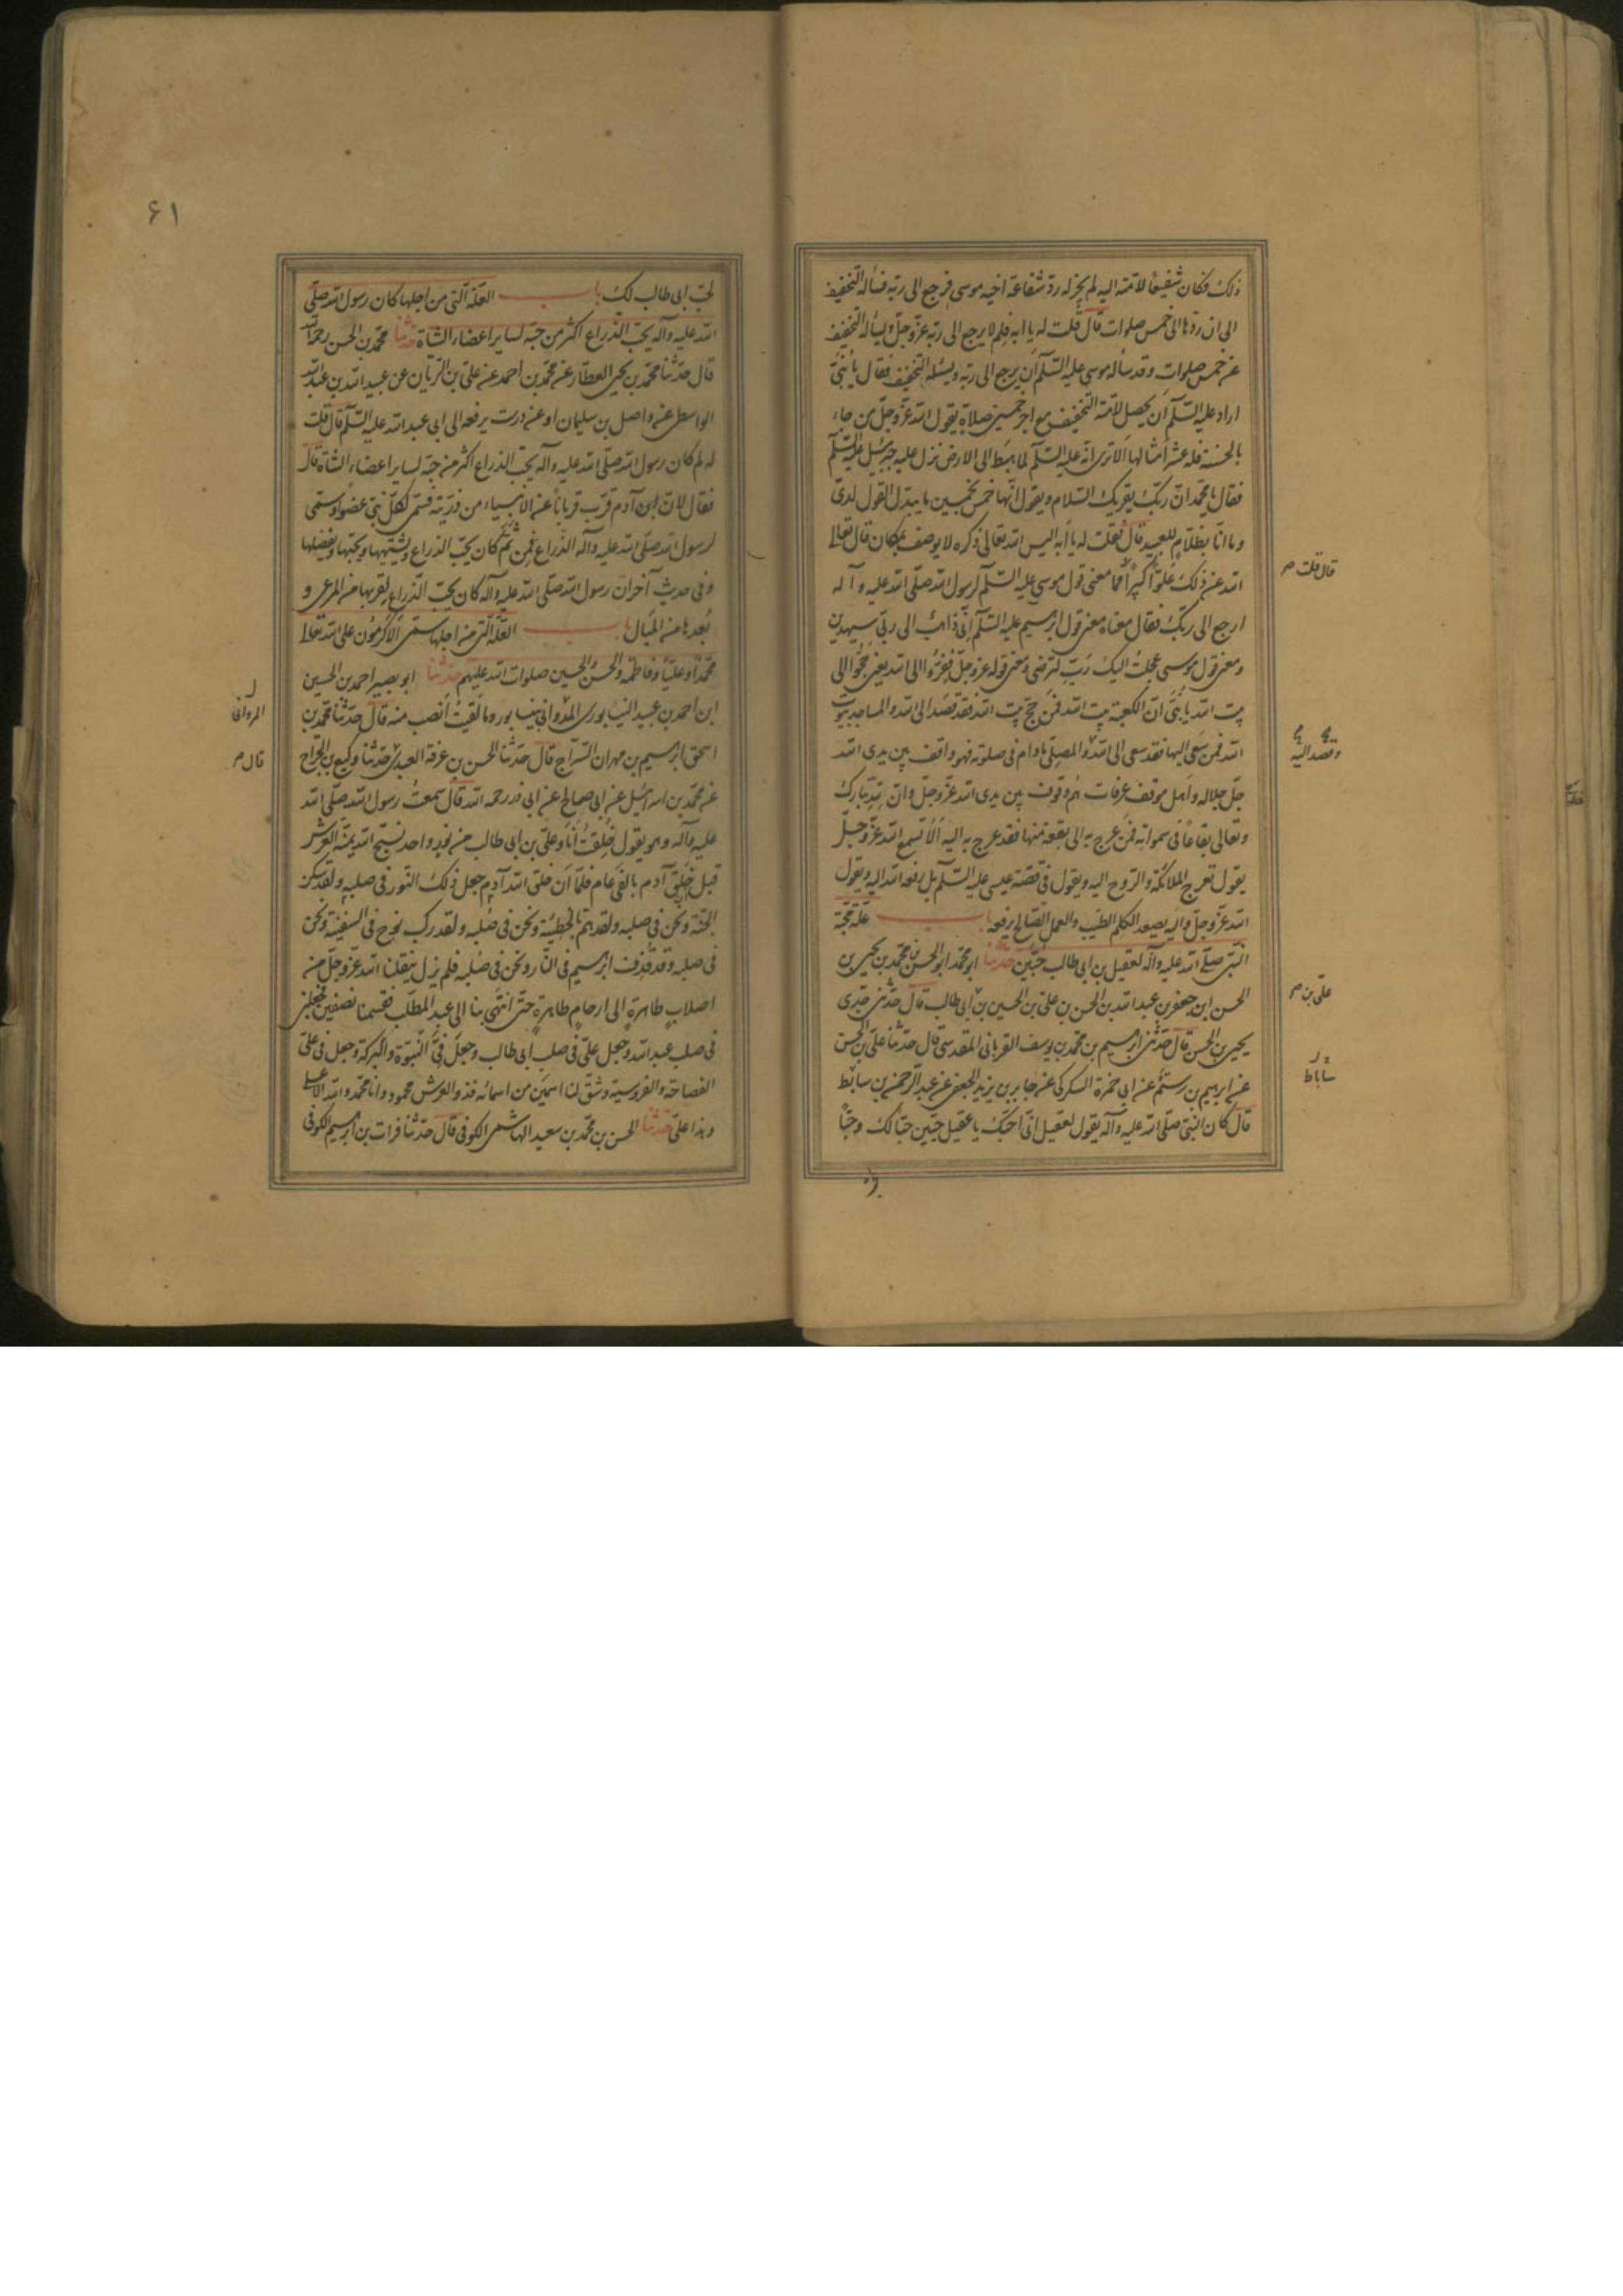 ذلك فكان شفيعًا لامّته اليه لم يجز له ردّ شفاعة اخيه موسى فرجع الى ربّه فسأله التخفيف
الى ان ردّها الى خمس صلوات قال قلت له يا ابه فلم لا يرجع الى ربّه عزّ وجلّ ويسأله التخفيف
عن خمس صلوات وقد سأله موسى عليه السّلم أن يرجع الى ربّه ويسئله التخفيف فقال يا بُنَيَّ
اراد عليه السّلم أن يحصل لامّته التخفيف مع اجر خمسين صلاةٍ يقول الله عزّ وجلّ من جاء
بالحسنة فله عشر أمثالها ألا ترى انّه عليه السّلم لما هبط الى الارض نزل عليه جبرئيل عليه السّلم
فقال يا محمّد انّ ربّك يقرئك السّلام ويقول انّها خمس بخمسين ما يبدّل القول لدىّ
وما انا بظلّام للعبيد قال فقلت له يا أبه اليس الله تعالى ذكره لا يوصف بمكان قال تعالى
الله عن ذلك علوًّا كبيرًا فما معنى قول موسى عليه السّلم لرسول الله صلّى الله عليه وآله
ارجع الى ربّك فقال معناه معنى قول ابرهيم عليه السّلم إنّى ذاهبٌ الى ربّى سيهدين
ومعنى قول موسى عجلتُ اليك رَبِّ لترضى ومعنى قوله عزّ وجلّ ففِرّوا الى الله يعنى حُجُّوا الى
بيت الله يا بُنَىَّ انّ الكعبة بيت الله فمن حجّ بيت الله فقد قصد الى الله والمساجد بيوت
الله فمن سعى اليها فقد سعى الى الله والمصلّى ما دام فى صلوته فهو واقف بين يدى الله
جلّ جلاله وأهل موقف عرفات هم وقوف بين يدى الله عزّ وجلّ وانّ لله تبارك
وتعالى بقاعًا فى سمواته فمن عرج به الى بقعة منها فقد عرج به اليه ألا تسمع الله عزّ وجلّ
يقول تعرج الملائكة والرّوح اليه ويقول فى قصّة عيسى عليه السّلم بل رفعه الله اليه ويقول
الله عزّ وجلّ واليه يصعد الكلم الطيّب والعمل الصّالح يرفعه باب علّة محبّة
النبىّ صلّى الله عليه وآله لعقيل بن ابى طالب حُبّين حدّثنا ابو محمّد الحسن بن محمّد بن يحيى بن
الحسن ابن جعفر بن عبد الله بن الحسن بن علىّ بن الحسين بن أبى طالب قال حدّثنى جدّى
يحيى بن الحسن قال حدّثنى ابرهيم بن محمّد بن يوسف القربانى المقدسىّ قال حدّثنا علىّ بن الحسن
عن ابرهيم بن رستم عن ابى حمزة السكرى عن جابر بن يزيد الجعفى عن عبد الرّحمن بن سابط
قال كان النبىّ صلّى الله عليه وآله يقول لعقيل انّى احبّك يا عقيل حبّين حبًّا لك وحبًّا
قال قلت صح
وقصد اليه
علىّ بن صح
ساباط
٦١
لحبّ ابى طالب لك باب العلّة الّتى من اجلها كان رسول الله صلّى
الله عليه وآله يحبّ الذراع اكثر من حبّه لساير اعضاء الشاة حدّثنا محمّد بن الحسن رحمه الله
قال حدّثنا محمّد بن يحيى العطّار عن محمّد بن احمد عن علىّ بن الرّيان عن عبيد الله بن عبد الله
الواسطى عن واصل بن سليمان او عن درست يرفعه الى ابى عبد الله عليه السّلم قال قلت
له لم كان رسول الله صلّى الله عليه وآله يحبّ الذراع اكثر من حبّه لساير اعضاء الشاة قال
فقال لانّ آدم قرّب قربانًا عن الانبياء من ذرّيته فسمّى لكلّ نبىّ عضوًا وسمّى
لرسول الله صلّى الله عليه وآله الذراع فمن ثَمَّ كان يحبّ الذراع ويشتهيها ويحبّها ويفضلها
وفى حديث آخر انّ رسول الله صلّى الله عليه وآله كان يحبّ الذّراع لقربها من المرعى و
بُعدها من المَبال باب العلّة الّتى من اجلها سمّى الاكرمون على الله تعالى
محمّدًا وعليًّا وفاطمة والحسن والحسين صلوات الله عليهم حدّثنا ابو بصير احمد بن الحسين
ابن احمد بن عبيد النيسابورى المدوانى بنيسابور وما لقيتُ انصب منه قال حدّثنا محمّد بن
اسحق ابرهيم بن مهران السّرّاج قال حدّثنا الحسن بن عرفة العبدى حدّثنا وكيع بن الجرّاح
عن محمّد بن اسرائيل عن ابى صالح عن ابى ذر رحمه الله قال سمعتُ رسول الله صلّى الله
عليه وآله وهو يقول خُلِقتُ أنَا وعلىّ بن ابى طالب من نور واحد نسبّح الله يمنة العرش
قبل خلق آدم بالفى عام فلمّا أن خلق الله آدم جعل ذلك النّور فى صلبه ولقد سكن
الجنّة ونحن فى صلبه ولقد همّ بالخطيئة ونحن فى صُلبه ولقد ركب نوح فى السفينة ونحن
فى صلبه وقد قُذِف ابرهيم فى النّار ونحن فى صُلبه فلم يزل ينقلنا الله عزّ وجلّ من
اصلابٍ طاهرةٍ الى ارحامٍ طاهرةٍ حتّى انتهى بنا الى عبد المطّلب فقسمنا نصفين فجعلنى
فى صلب عبد الله وجعل علىّ فى صلب ابى طالب وجعل فىَّ النّبوّة والبركة وجعل فى علىّ
الفصاحة والفروسية وشقّ لنا اسمين من اسمائه فذو العرش محمود وانا محمّد والله الاعلى
وهذا علىّ حدّثنا الحسن بن محمّد بن سعيد الهاشمى الكوفى قال حدّثنا فرات بن ابرهيم الكوفى
المروانى
قال صح